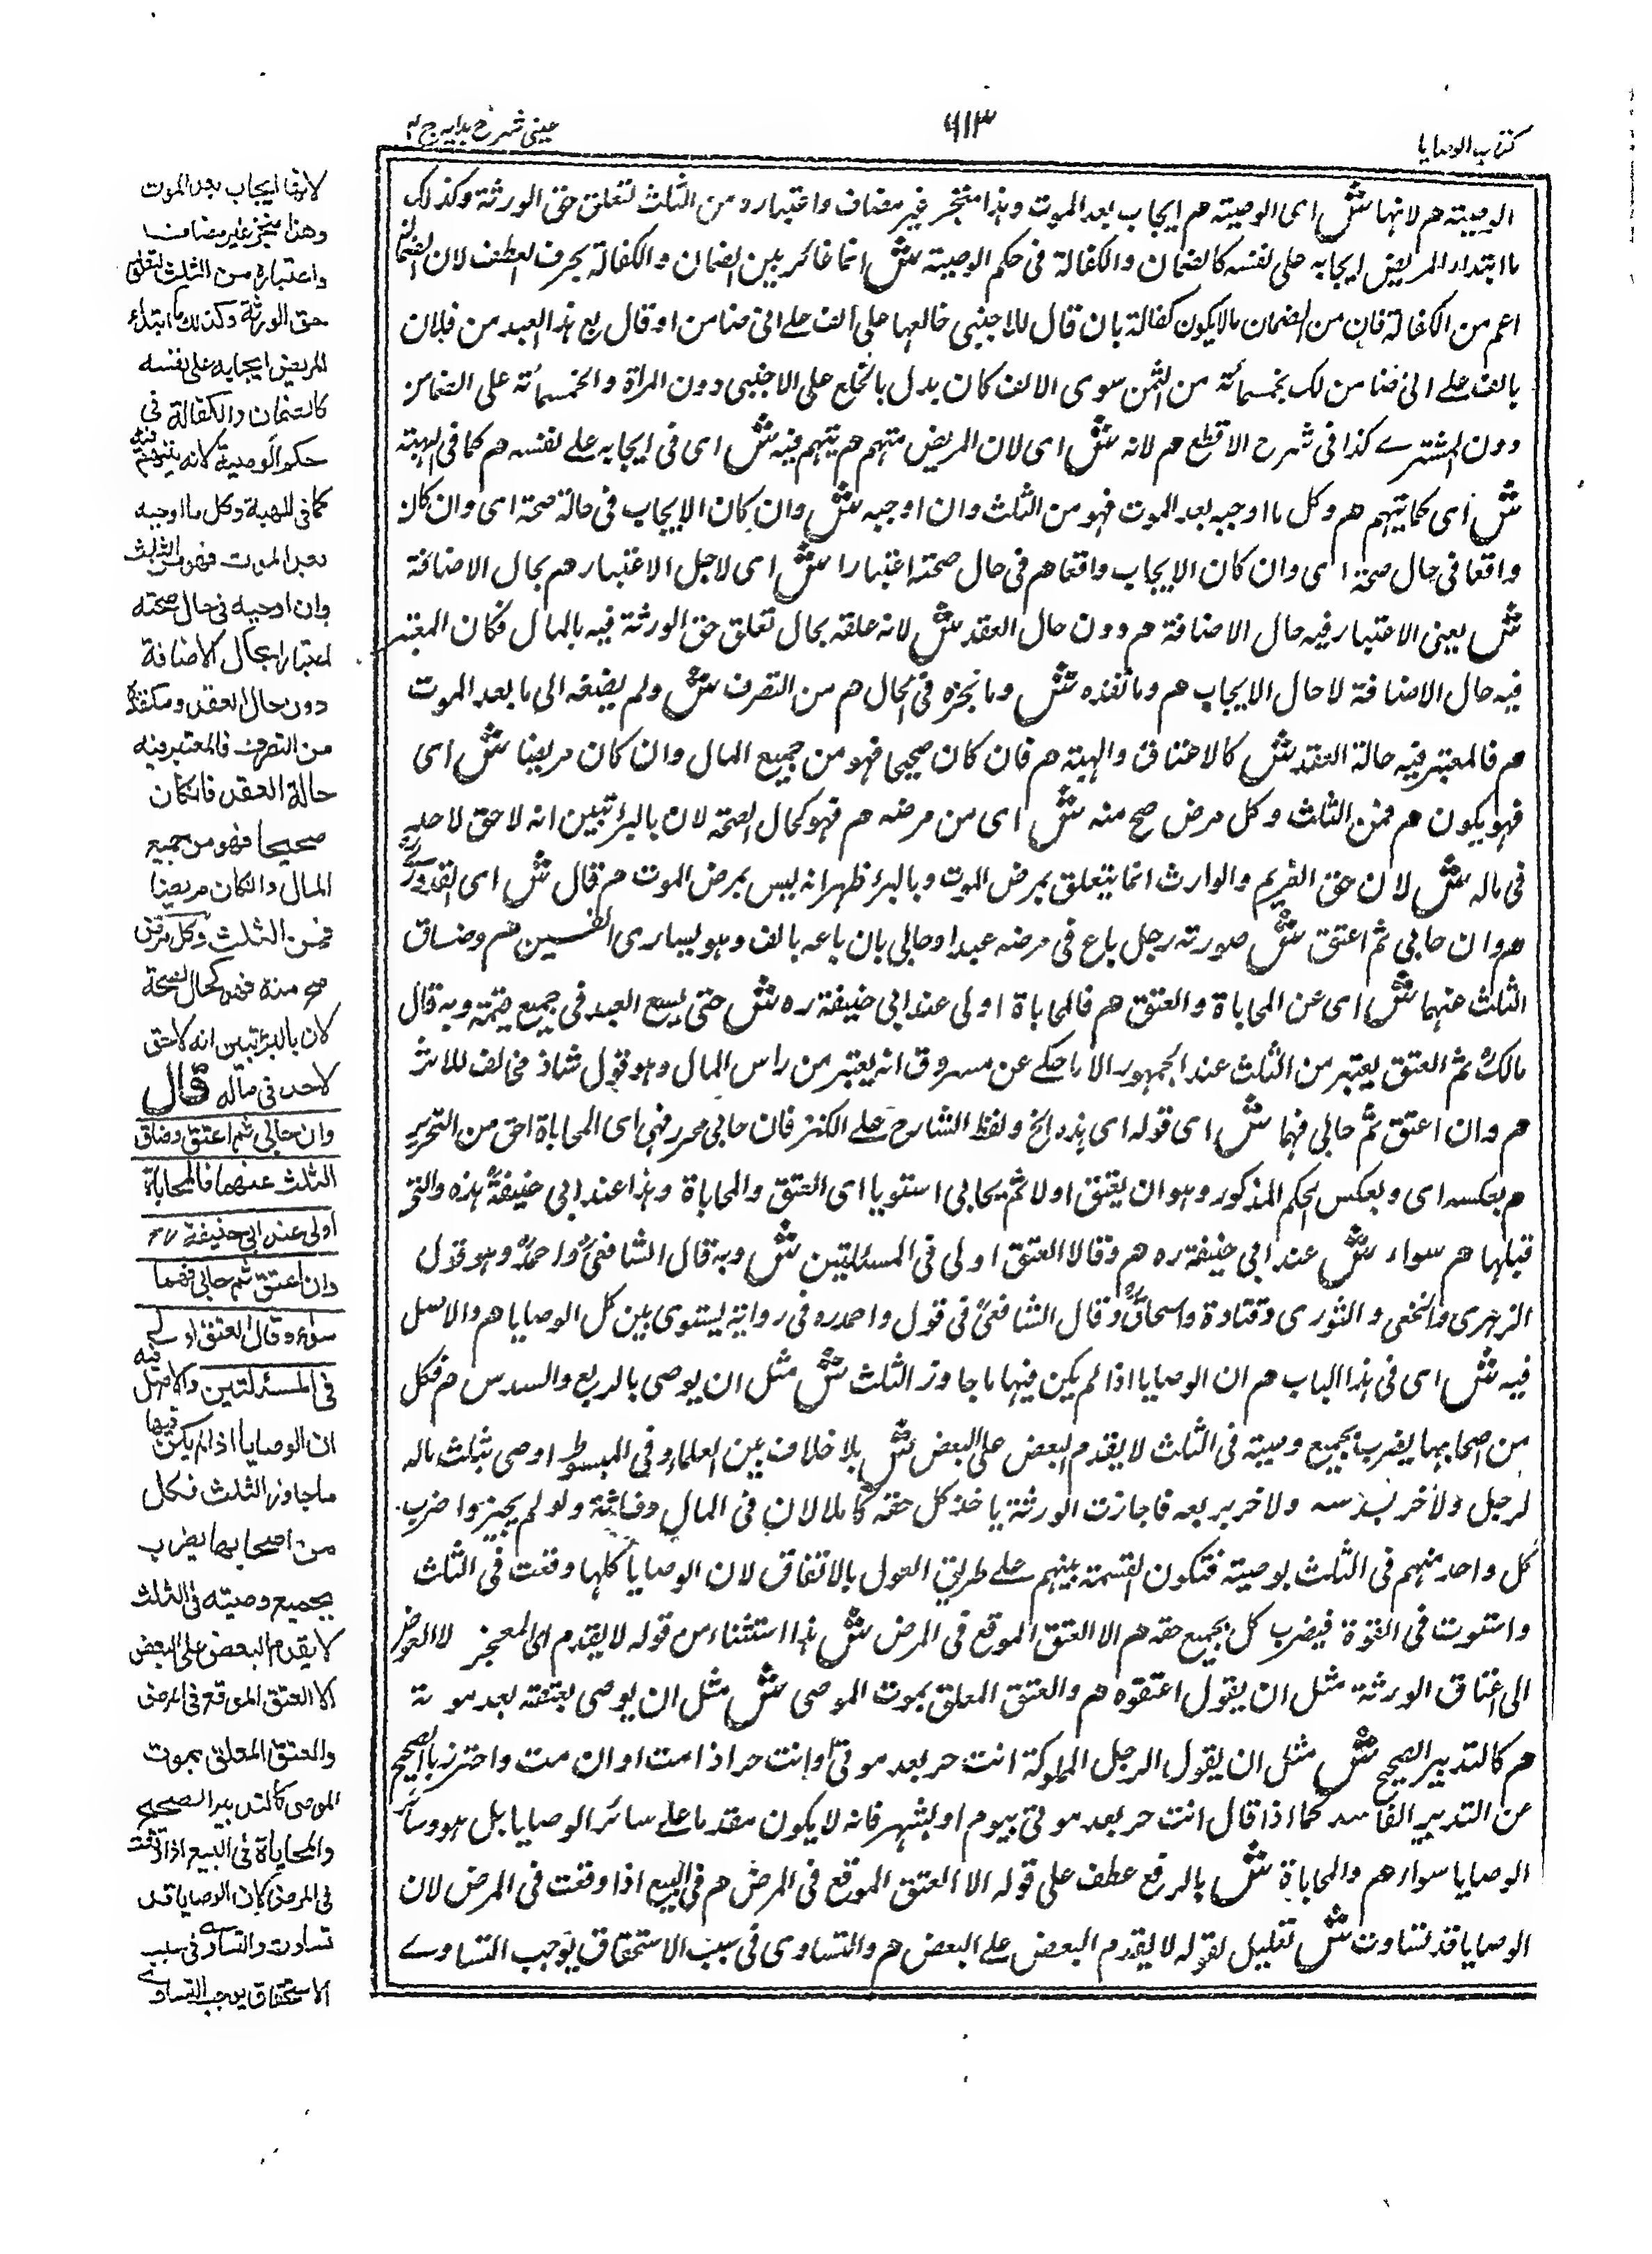 كتاب الوصايا
٦١٣
عینی شرح ہدایہ ج ٤
الوصيته هم لانها ش اى الوصيته هم ايجاب بعد الموت وهذا منجز غير مضاف واعتباره من الثلث لتعلق حق الورثة وكذلك
ما ابتداء المريض ايجابه على نفسه كالضمان والكفالة فى حكم الوصيته ش انما غائر بين الضمان والكفالة بحرف العطف لان الضمان
اعم من الكفالة فان من الضمان مالا يكون كفالة بان قال للاجنبى خالعها على الف على انى ضامن او قال بع هذا العبد من فلان
بالف على انى ضامن لك بخمسمائة من الثمن سوى الالف كان بدل بالخلع على الاجنبى دون المراة والخمسمائة على الضامن
دون المشترى كذا فى شرح الاقطع هم لانه ش اى لان المريض متهم هم يتهم فيه ش اى فى ايجابه على نفسه هم كما فى الهبة
ش اى كما يتهم هم وكل ما اوجبه بعد الموت فهو من الثلث وان اوجبه ش وان كان الايجاب فى حالة صحته اى وان كان
واقعا فى حال صحته اى وان كان الايجاب واقعا هم فى حال صحته اعتبارا ش اى لاجل الاعتبار هم بحال الاضافة
ش يعنى الاعتبار فيه حال الاضافة هم دون حال العقد ش لانه علقه بحال تعلق حق الورثة فيه بالمال فكان المعتبر
فيه حال الاضافة لا حال الايجاب هم وما نفذه ش وما نجزه فى الحال هم من التصرف ش ولم يضفه الى ما بعد الموت
هم فالمعتبر فيه حالة العقد ش كالاعتاق والهبة هم فان كان صحيحا فهو من جميع المال وان كان مريضا ش اى
فهو يكون هم فمن الثلث وكل مرض صح منه ش اى من مرضه هم فهو كحال الصحة لان بالبرا تبين انه لا حق لاحد
فى ماله ش لان حق الغريم والوارث انما يتعلق بمرض الموت وبالبرا ظهر انه ليس بمرض الموت هم قال ش اى القدورى
هم وان حابى ثم اعتق ش صورته رجل باع فى مرضه عبدا وحابى بان باعه بالف وهو يساوى الفين هم وضاق
الثلث عنهما ش اى عن المحاباة والعتق هم فالمحاباة اولى عند ابى حنيفة ره ش حتى يسع العبد فى جميع قيمته وبه قال
مالك ثم العتق يعتبر من الثلث عند الجمهور الا ما حكى عن مسروق انه يعتبر من راس المال وهو قول شاذ مخالف للاثر
هم وان اعتق ثم حابى فهما ش اى قوله اى هذه الخ ولفظ الشارح على الكنز فان حابى محرر فهى اى المحاباة احق من التحرير
هم بعكسه اى وبعكس الحكم المذكور وهو ان يعتق اولا ثم يحابى استويا اى العتق والمحاباة وهذا عند ابى حنيفة هذه والتى
قبلها هم سواء ش عند ابى حنيفة ره هم وقالا العتق اولى فى المسئلتين ش وبه قال الشافعى واحمد وهو قول
الزهرى والنخعى والثورى وقتادة واسحاق وقال الشافعى فى قول واحمد ره فى رواية يستوى بين كل الوصايا هم والاصل
فيه ش اى فى هذا الباب هم ان الوصايا اذا لم يكن فيها ما جاوز الثلث ش مثل ان يوصى بالربع والسدس هم فكل
من اصحابها يضرب بجميع وصيته فى الثلث لا يقدم البعض على البعض ش بلا خلاف بين العلماء وفى المبسوط اوصى بثلث ماله
لرجل ولآخر بسدسه ولآخر بربعه فاجازت الورثة ياخذ كل حقه كاملا لان فى المال وفائه ولو لم يجيزوا ضرب
كل واحد منهم فى الثلث بوصيته فتكون القسمة بينهم على طريق العول بالاتفاق لان الوصايا كلها وقعت فى الثلث
واستوت فى القوة فيضرب كل بجميع حقه هم الا العتق الموقع فى المرض ش هذا استثناء من قوله لا يقدم اى المنجز لا المفوض
الى اعتاق الورثة مثل ان يقول اعتقوه هم والعتق المعلق بموت الموصى ش مثل ان يوصى بعتقه بعد موته
هم كالتدبير الصحيح ش مثل ان يقول الرجل لمملوكه انت حر بعد موتى او انت حر اذا مت او ان مت واحترز بالصحيح
عن التدبير الفاسد كما اذا قال انت حر بعد موتى بيوم او بشهر فانه لا يكون مقدما على سائر الوصايا بل هو وسائر
الوصايا سواء هم والمحاباة ش بالرفع عطف على قوله الا العتق الموقع فى المرض هم فى البيع اذا وقعت فى المرض لان
الوصايا قد تساوت ش تعليل لقوله لا يقدم البعض على البعض هم والتساوى فى سبب الاستحقاق يوجب التساوى
لانها ايجاب بعد الموت
وهذا منجز غير مضاف
واعتباره من الثلث لتعلق
حق الورثة وكذلك ما ابتداء
المريض ايجابه على نفسه
كالضمان والكفالة فى
حكم الوصية لانه يتهم فيه
كما فى الهبة وكل ما اوجبه
بعد الموت فهو من الثلث
وان اوجبه فى حال صحته
اعتبارا بحال الاضافة
دون حال العقد وما نفذه
من التصرف فالمعتبر فيه
حالة العقد فان كان
صحيحا فهو من جميع
المال وان كان مريضا
فمن الثلث وكل مرض
صح منه فهو كحال الصحة
لان بالبرء تبين انه لا حق
لاحد فى ماله قال
وان حابى ثم اعتق وضاق
الثلث عنهما فالمحاباة
اولى عند ابى حنيفة رح
وان اعتق ثم حابى فهما
سواء وقالا العتق اولى
فى المسئلتين والاصل فيه
ان الوصايا اذا لم يكن فيها
ما جاوز الثلث فكل
من اصحابها يضرب
بجميع وصيته فى الثلث
لا يقدم البعض على البعض
الا العتق الموقع فى المرض
والعتق المعلق بموت
الموصى كالتدبير الصحيح
والمحاباة فى البيع اذا وقعت
فى المرض لان الوصايا قد
تساوت والتساوى فى سبب
الاستحقاق يوجب التساوى